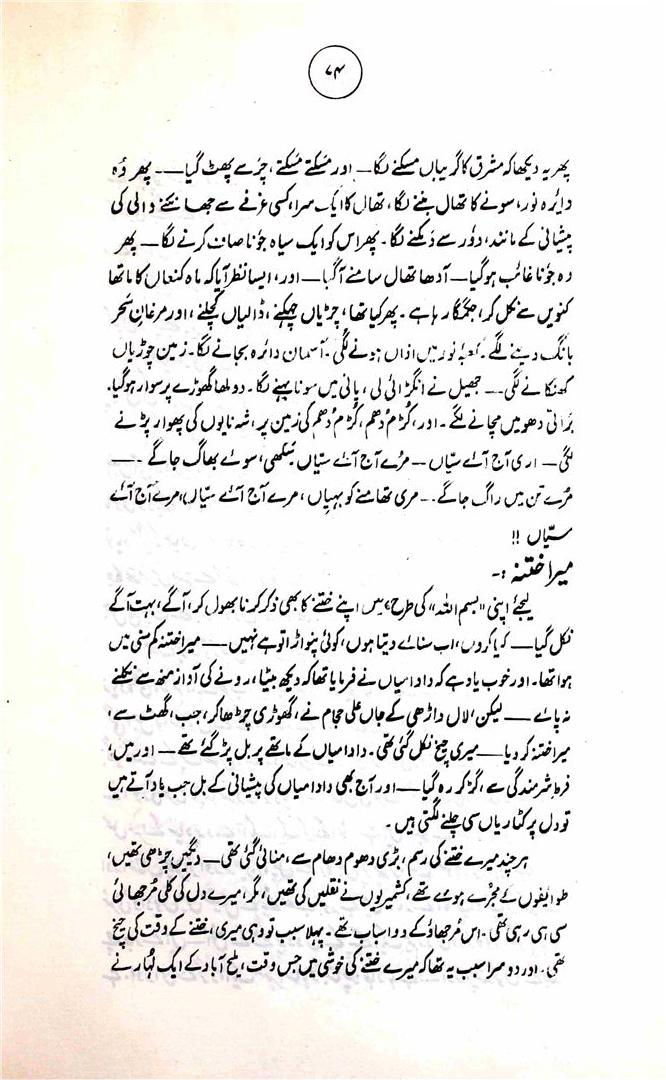 ۷۴
پھر یہ دیکھا کہ مشرق کا گریباں مسکنے لگا — اور مُسکتے مُسکتے، چرسے پھٹ گیا — پھر وُہ
دایرہ نور، سونے کا تھال بننے لگا، تھال کا ایک سرا، کسی غرفے سے جھانکنے والی کی
پیشانی کے مانند، دُور سے دمکنے لگا۔ پھر اس کو ایک سیاہ جوٗنا صاف کرنے لگا — پھر
وہ جوٗنا غائب ہو گیا — آدھا تھال سامنے آ گیا — اور، ایسا نظر آیا کہ ماہِ کنعاں کا ماتھا
کنویں سے نکل کر، جگمگا رہا ہے۔ پھر کیا تھا، چڑیاں چہکنے، ڈالیاں لچکنے، اور مرغانِ سحر
بانگ دینے لگے۔ کعبۂ نور میں اذاں ہونے لگی۔ آسمان دائرہ بجانے لگا۔ زمین چوڑیاں
کھنکانے لگی — جھیل نے انگڑائی لی، پانی میں سونا بہنے لگا۔ دولھا گھوڑے پر سوار ہو گیا،
براتی دھومیں مچانے لگے۔ اور، کڑم دھم، کڑم دھم کی زمین پر، شہنایوں کی پھوار پڑنے
لگی — اری آج آئے سیّاں — مُرے آج آئے سیّاں سکھی، سوئے بھاگ جاگے —
مُرے تن میں راگ جاگے — مری تھامنے کو بہیاں، مرے آج آئے سیّاں، مرے آج آئے
سیّاں !!
میرا ختنہ :-
لیجئے اپنی "بسم اللہ" کی طرح، میں اپنے ختنے کا بھی ذکر کرنا بھول کر، آگے، بہت آگے
نکل گیا — کیا کروں، اب سنائے دیتا ہوں، کوئی پنواڑا تو ہے نہیں — میرا ختنہ کم سنی میں
ہوا تھا۔ اور خوب یاد ہے کہ دادا میاں نے فرمایا تھا کہ دیکھ بیٹا، رونے کی آواز منھ سے نکلنے
نہ پائے — لیکن، لال داڑھی کے جاں علی حجام نے، گھوڑی چڑھا کر، جب، کھٹ سے،
میرا ختنہ کر دیا — میری چیخ نکل گئی تھی۔ دادا میاں کے ماتھے پر بل پڑ گئے تھے — اور میں،
فرطِ شرمندگی سے، گڑ کر رہ گیا — اور آج بھی دادا میاں کی پیشانی کے بل جب یاد آتے ہیں
تو دل پر کٹاریاں سی چلنے لگتی ہیں۔
ہر چند میرے ختنے کی رسم، بڑی دھوم دھام سے، منائی گئی تھی — دیگیں چڑھی تھیں،
طوایفوں کے مجرے ہوئے تھے، کشمیریوں نے نقلیں کی تھیں، مگر، میرے دل کی کلی مرجھائی
سی ہی رہی تھی۔ اس مُرجھاؤ کے دو اسباب تھے۔ پہلا سبب تو وہی میری، ختنے کے وقت کی چیخ
تھی۔ اور دوسرا سبب یہ تھا کہ میرے ختنے کی خوشی میں جس وقت، ملیح آباد کے ایک لُہار نے